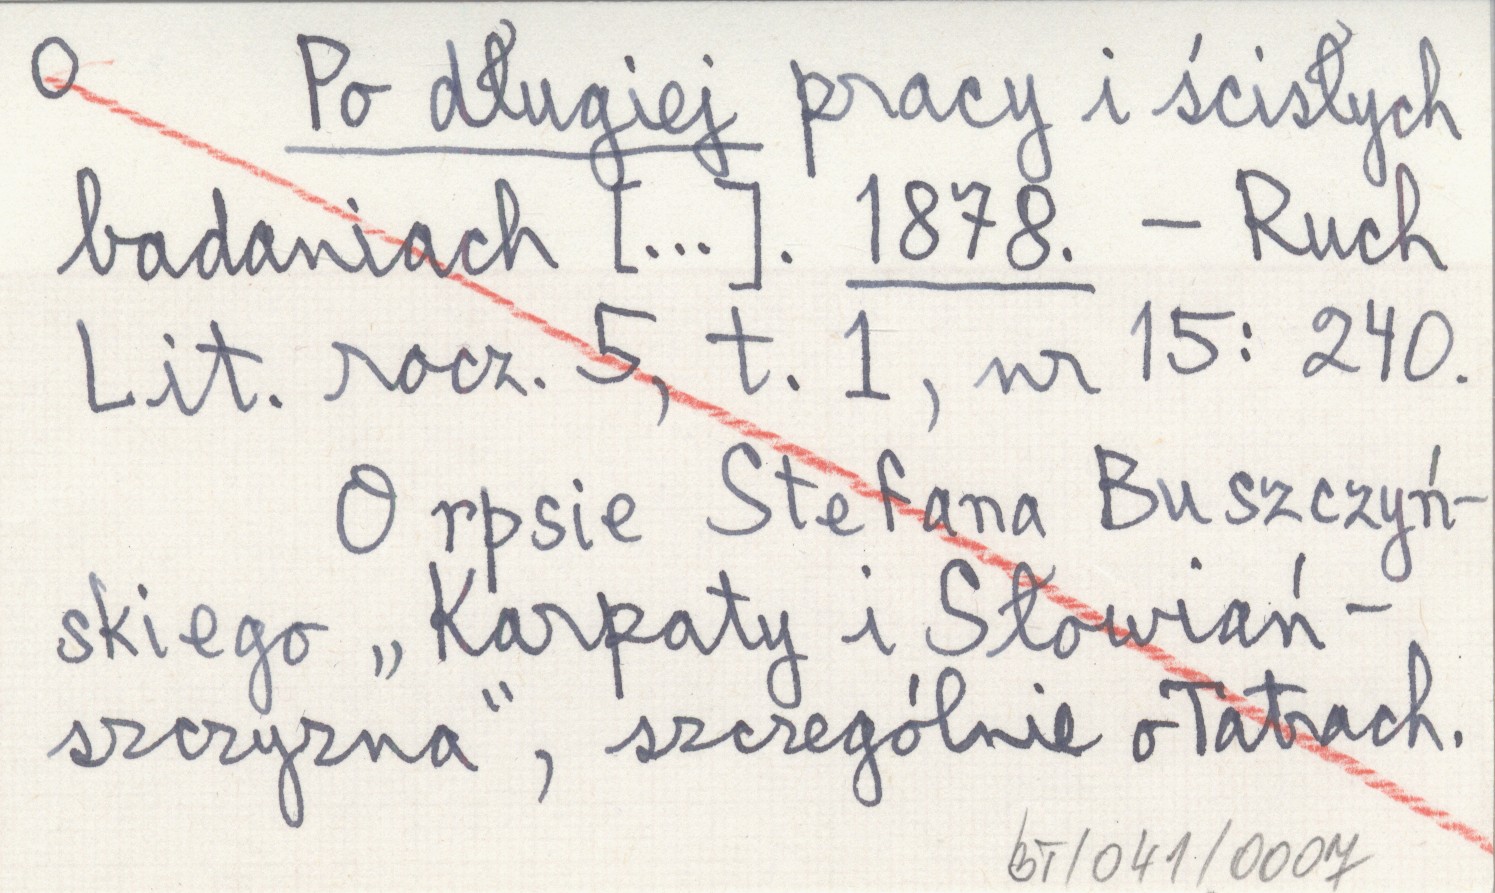 O Po długiej pracy i ścisłych
badaniach [...]. 1878. – Ruch
Lit. rocz. 5, t. 1, nr 15: 240.
O rpsie Stefana Buszczyń-
skiego „Karpaty i Słowiań-
szczyzna", szczególnie o Tatrach.
BT/041/0007